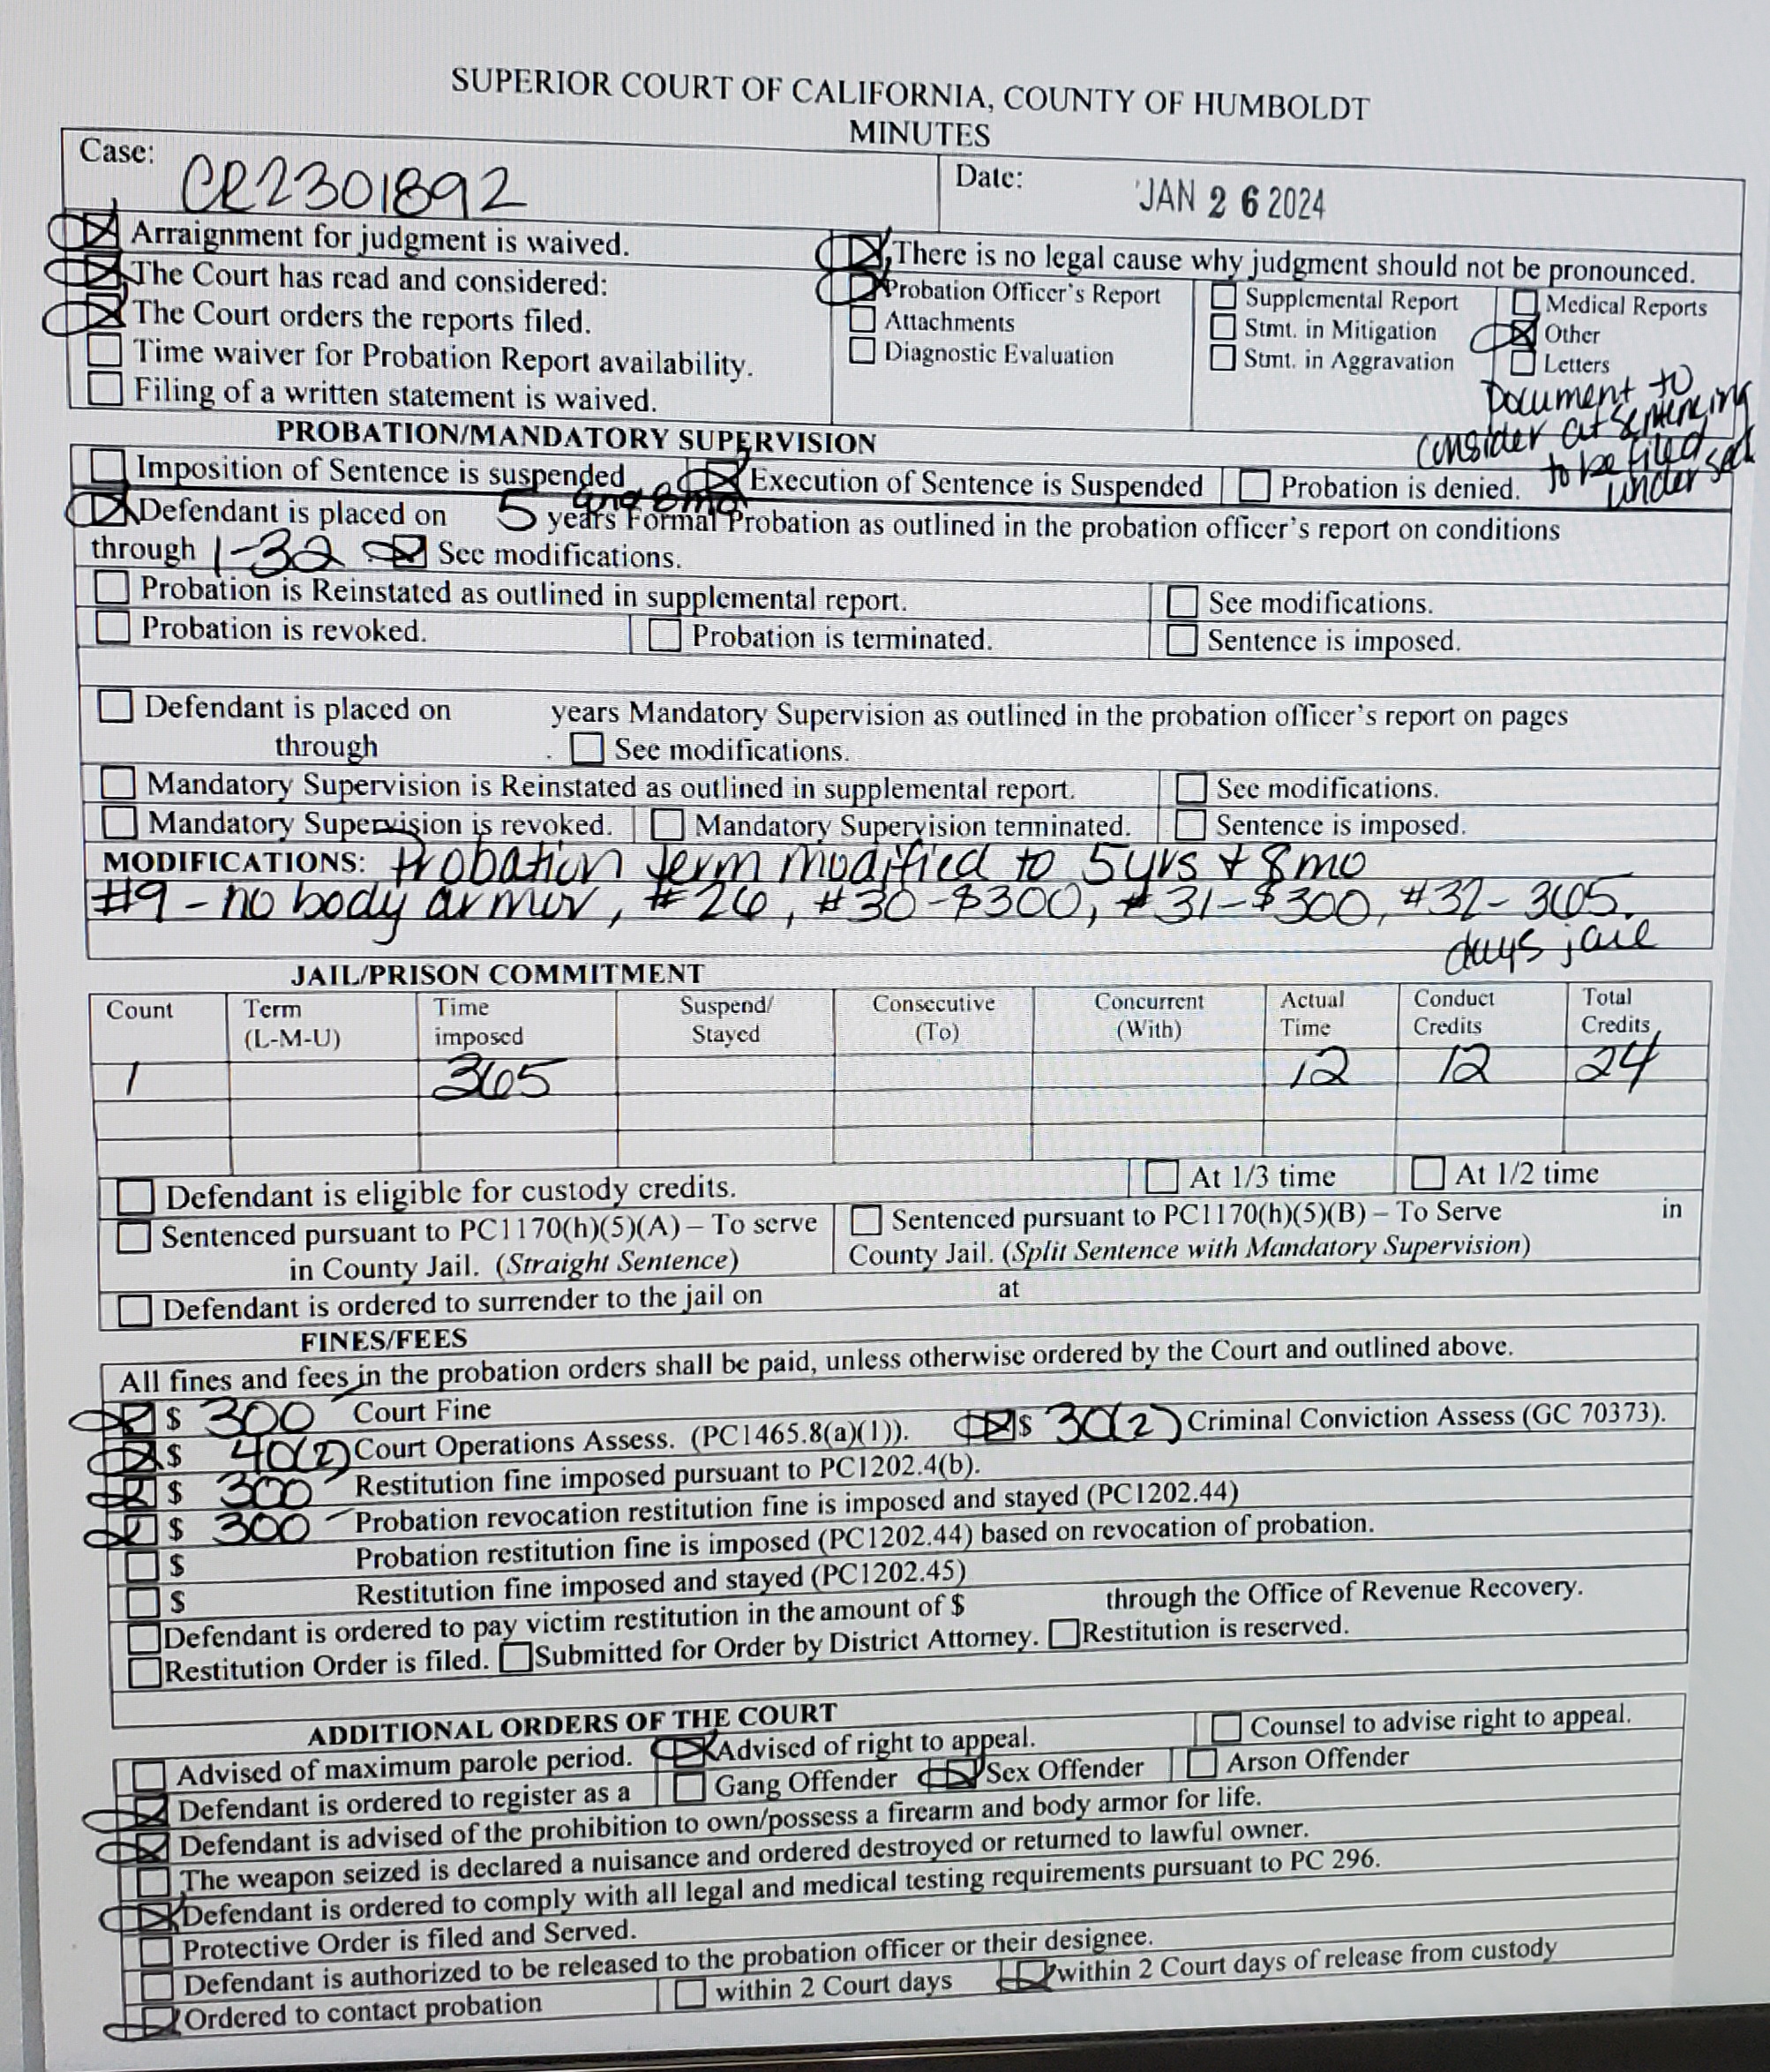 SUPERIOR COURT OF CALIFORNIA, COUNTY OF HUMBOLDT
MINUTES
Case: CR2301892 Date: JAN 26 2024
Arraignment for judgment is waived. There is no legal cause why judgment should not be pronounced.
The Court has read and considered: Probation Officer's Report Supplemental Report Medical Reports
The Court orders the reports filed. Attachments Stmt. in Mitigation Other
Time waiver for Probation Report availability. Diagnostic Evaluation Stmt. in Aggravation Letters
Filing of a written statement is waived.
Document to
consider at sentencing
to be filed
under seal
PROBATION/MANDATORY SUPERVISION
Imposition of Sentence is suspended Execution of Sentence is Suspended Probation is denied.
and 8mo
Defendant is placed on 5 years Formal Probation as outlined in the probation officer's report on conditions
through 1-32 See modifications.
Probation is Reinstated as outlined in supplemental report. See modifications.
Probation is revoked. Probation is terminated. Sentence is imposed.
Defendant is placed on years Mandatory Supervision as outlined in the probation officer's report on pages
through . See modifications.
Mandatory Supervision is Reinstated as outlined in supplemental report. See modifications.
Mandatory Supervision is revoked. Mandatory Supervision terminated. Sentence is imposed.
MODIFICATIONS: Probation term modified to 5yrs + 8mo
#9 - no body armor, #26, #30-$300, #31-$300, #32- 365
days jail
JAIL/PRISON COMMITMENT
Count Term Time Suspend/ Consecutive Concurrent Actual Conduct Total
(L-M-U) imposed Stayed (To) (With) Time Credits Credits
1 365 12 12 24
Defendant is eligible for custody credits. At 1/3 time At 1/2 time
Sentenced pursuant to PC1170(h)(5)(A) – To serve Sentenced pursuant to PC1170(h)(5)(B) – To Serve in
in County Jail. (Straight Sentence) County Jail. (Split Sentence with Mandatory Supervision)
Defendant is ordered to surrender to the jail on at
FINES/FEES
All fines and fees in the probation orders shall be paid, unless otherwise ordered by the Court and outlined above.
$ 300 Court Fine
$ 40(2) Court Operations Assess. (PC1465.8(a)(1)). $ 30(2) Criminal Conviction Assess (GC 70373).
$ 300 Restitution fine imposed pursuant to PC1202.4(b).
$ 300 Probation revocation restitution fine is imposed and stayed (PC1202.44)
$ Probation restitution fine is imposed (PC1202.44) based on revocation of probation.
$ Restitution fine imposed and stayed (PC1202.45)
Defendant is ordered to pay victim restitution in the amount of $ through the Office of Revenue Recovery.
Restitution Order is filed. Submitted for Order by District Attorney. Restitution is reserved.
ADDITIONAL ORDERS OF THE COURT
Advised of maximum parole period. Advised of right to appeal. Counsel to advise right to appeal.
Defendant is ordered to register as a Gang Offender Sex Offender Arson Offender
Defendant is advised of the prohibition to own/possess a firearm and body armor for life.
The weapon seized is declared a nuisance and ordered destroyed or returned to lawful owner.
Defendant is ordered to comply with all legal and medical testing requirements pursuant to PC 296.
Protective Order is filed and Served.
Defendant is authorized to be released to the probation officer or their designee.
Ordered to contact probation within 2 Court days within 2 Court days of release from custody